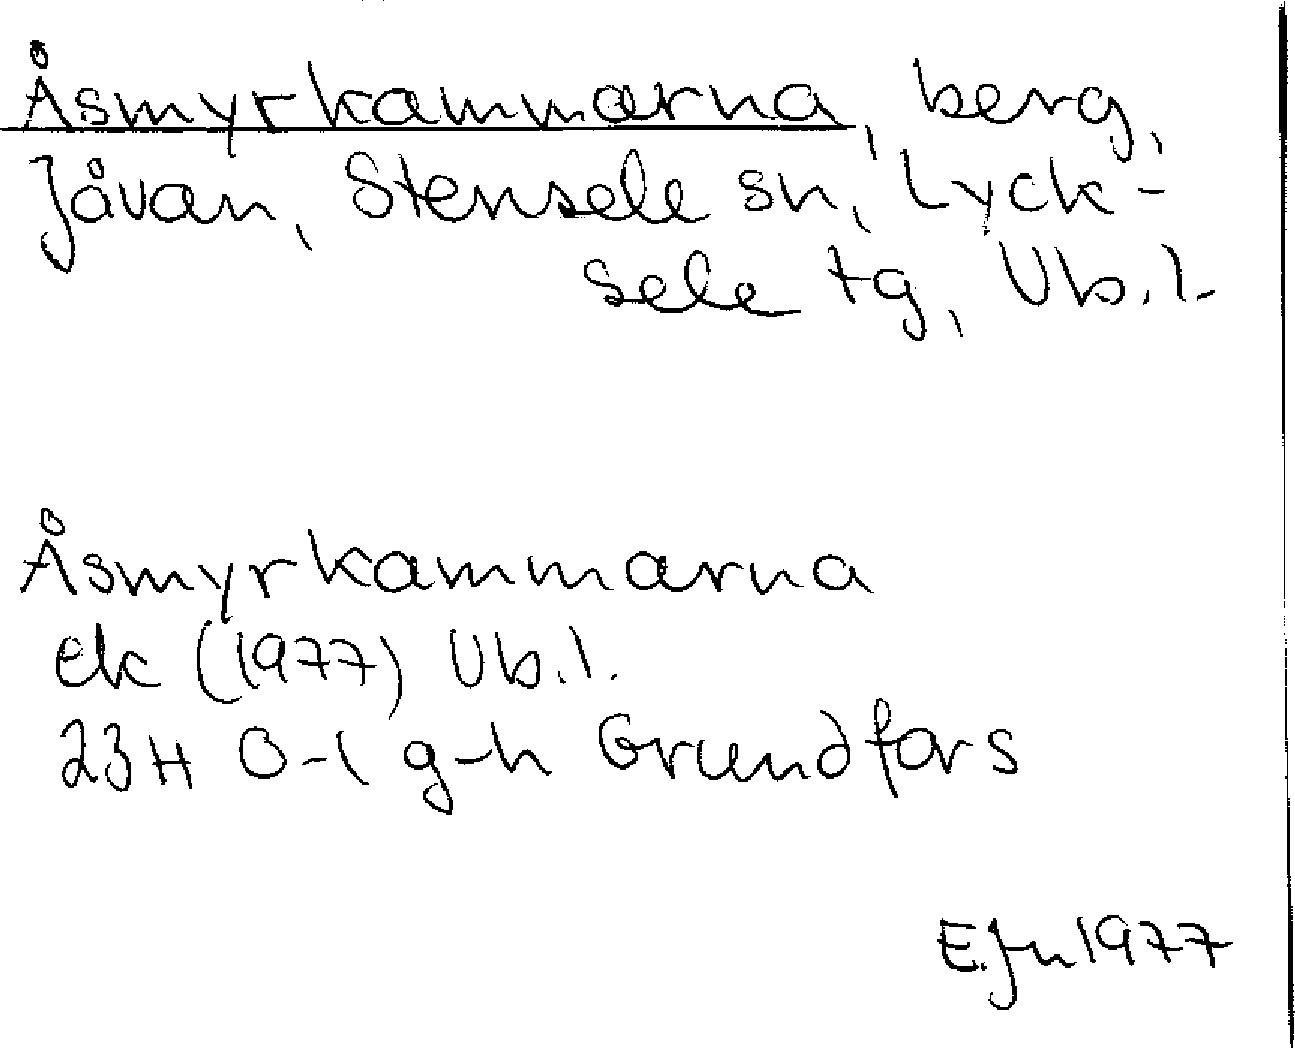 Åsmyrkammarna, berg,
Jåvan, Stensele sn, Lyck-
sele tg, Vb.l.
Åsmyrkammarna
ek (1977) Vb.l.
23H 0-1 g-h Grundfors
E.Jn 1977